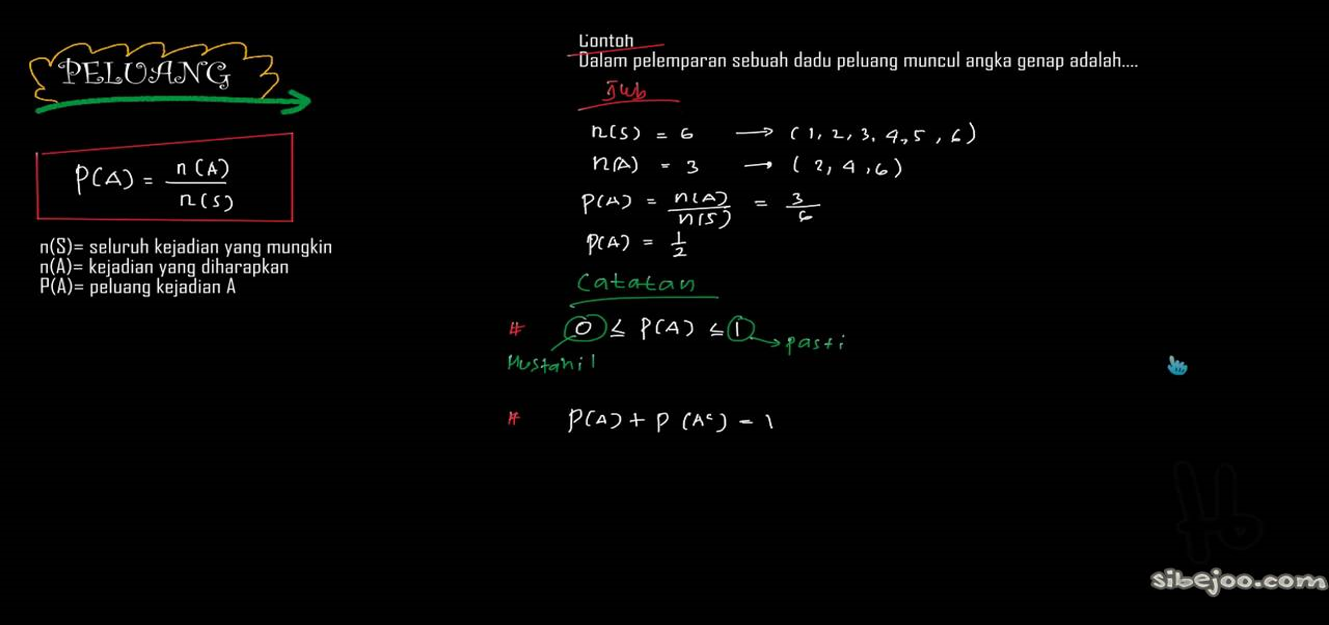 PELUANG
P(A) = n(A)/n(S)
n(S)= seluruh kejadian yang mungkin
n(A)= kejadian yang diharapkan
P(A)= peluang kejadian A
Contoh
Dalam pelemparan sebuah dadu peluang muncul angka genap adalah....
Jwb
n(S) = 6 → (1, 2, 3, 4, 5, 6)
n(A) = 3 → (2, 4, 6)
P(A) = n(A)/n(S) = 3/6
P(A) = 1/2
Catatan
# 0 ≤ P(A) ≤ 1 → pasti
Mustahil
# P(A) + P(Aᶜ) = 1
sibejoo.com